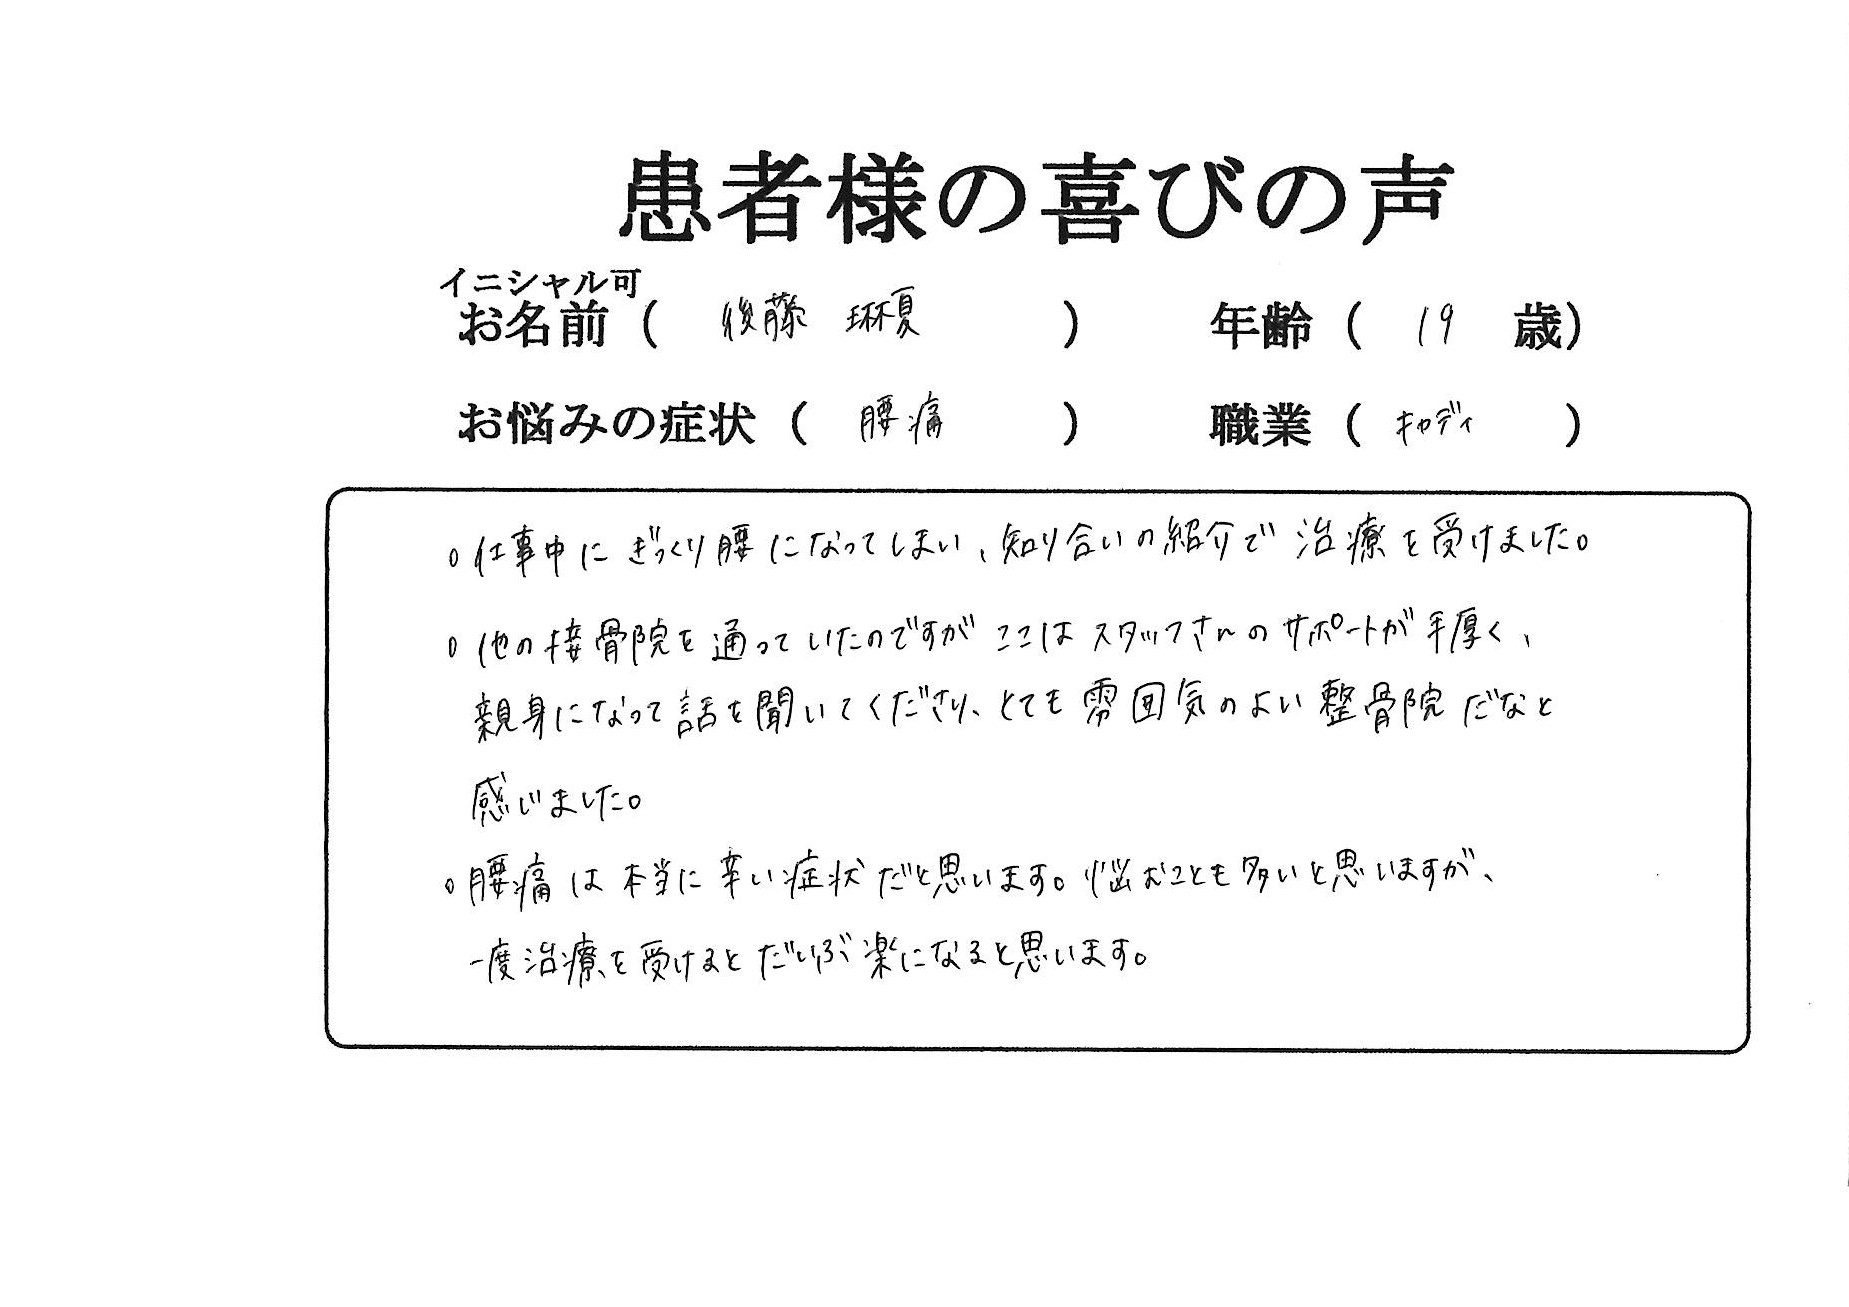 患者様の喜びの声
イニシャル可
お名前 ( 後藤 琳夏 ) 年齢 ( 19 歳)
お悩みの症状 ( 腰痛 ) 職業 ( キャディ )
○仕事中にぎっくり腰になってしまい、知り合いの紹介で治療を受けました。
○他の接骨院を通っていたのですがここはスタッフさんのサポートが手厚く、
親身になって話を聞いてくださり、とても雰囲気のよい整骨院だなと
感じました。
○腰痛は本当に辛い症状だと思います。悩むことも多いと思いますが、
一度治療を受けるとだいぶ楽になると思います。